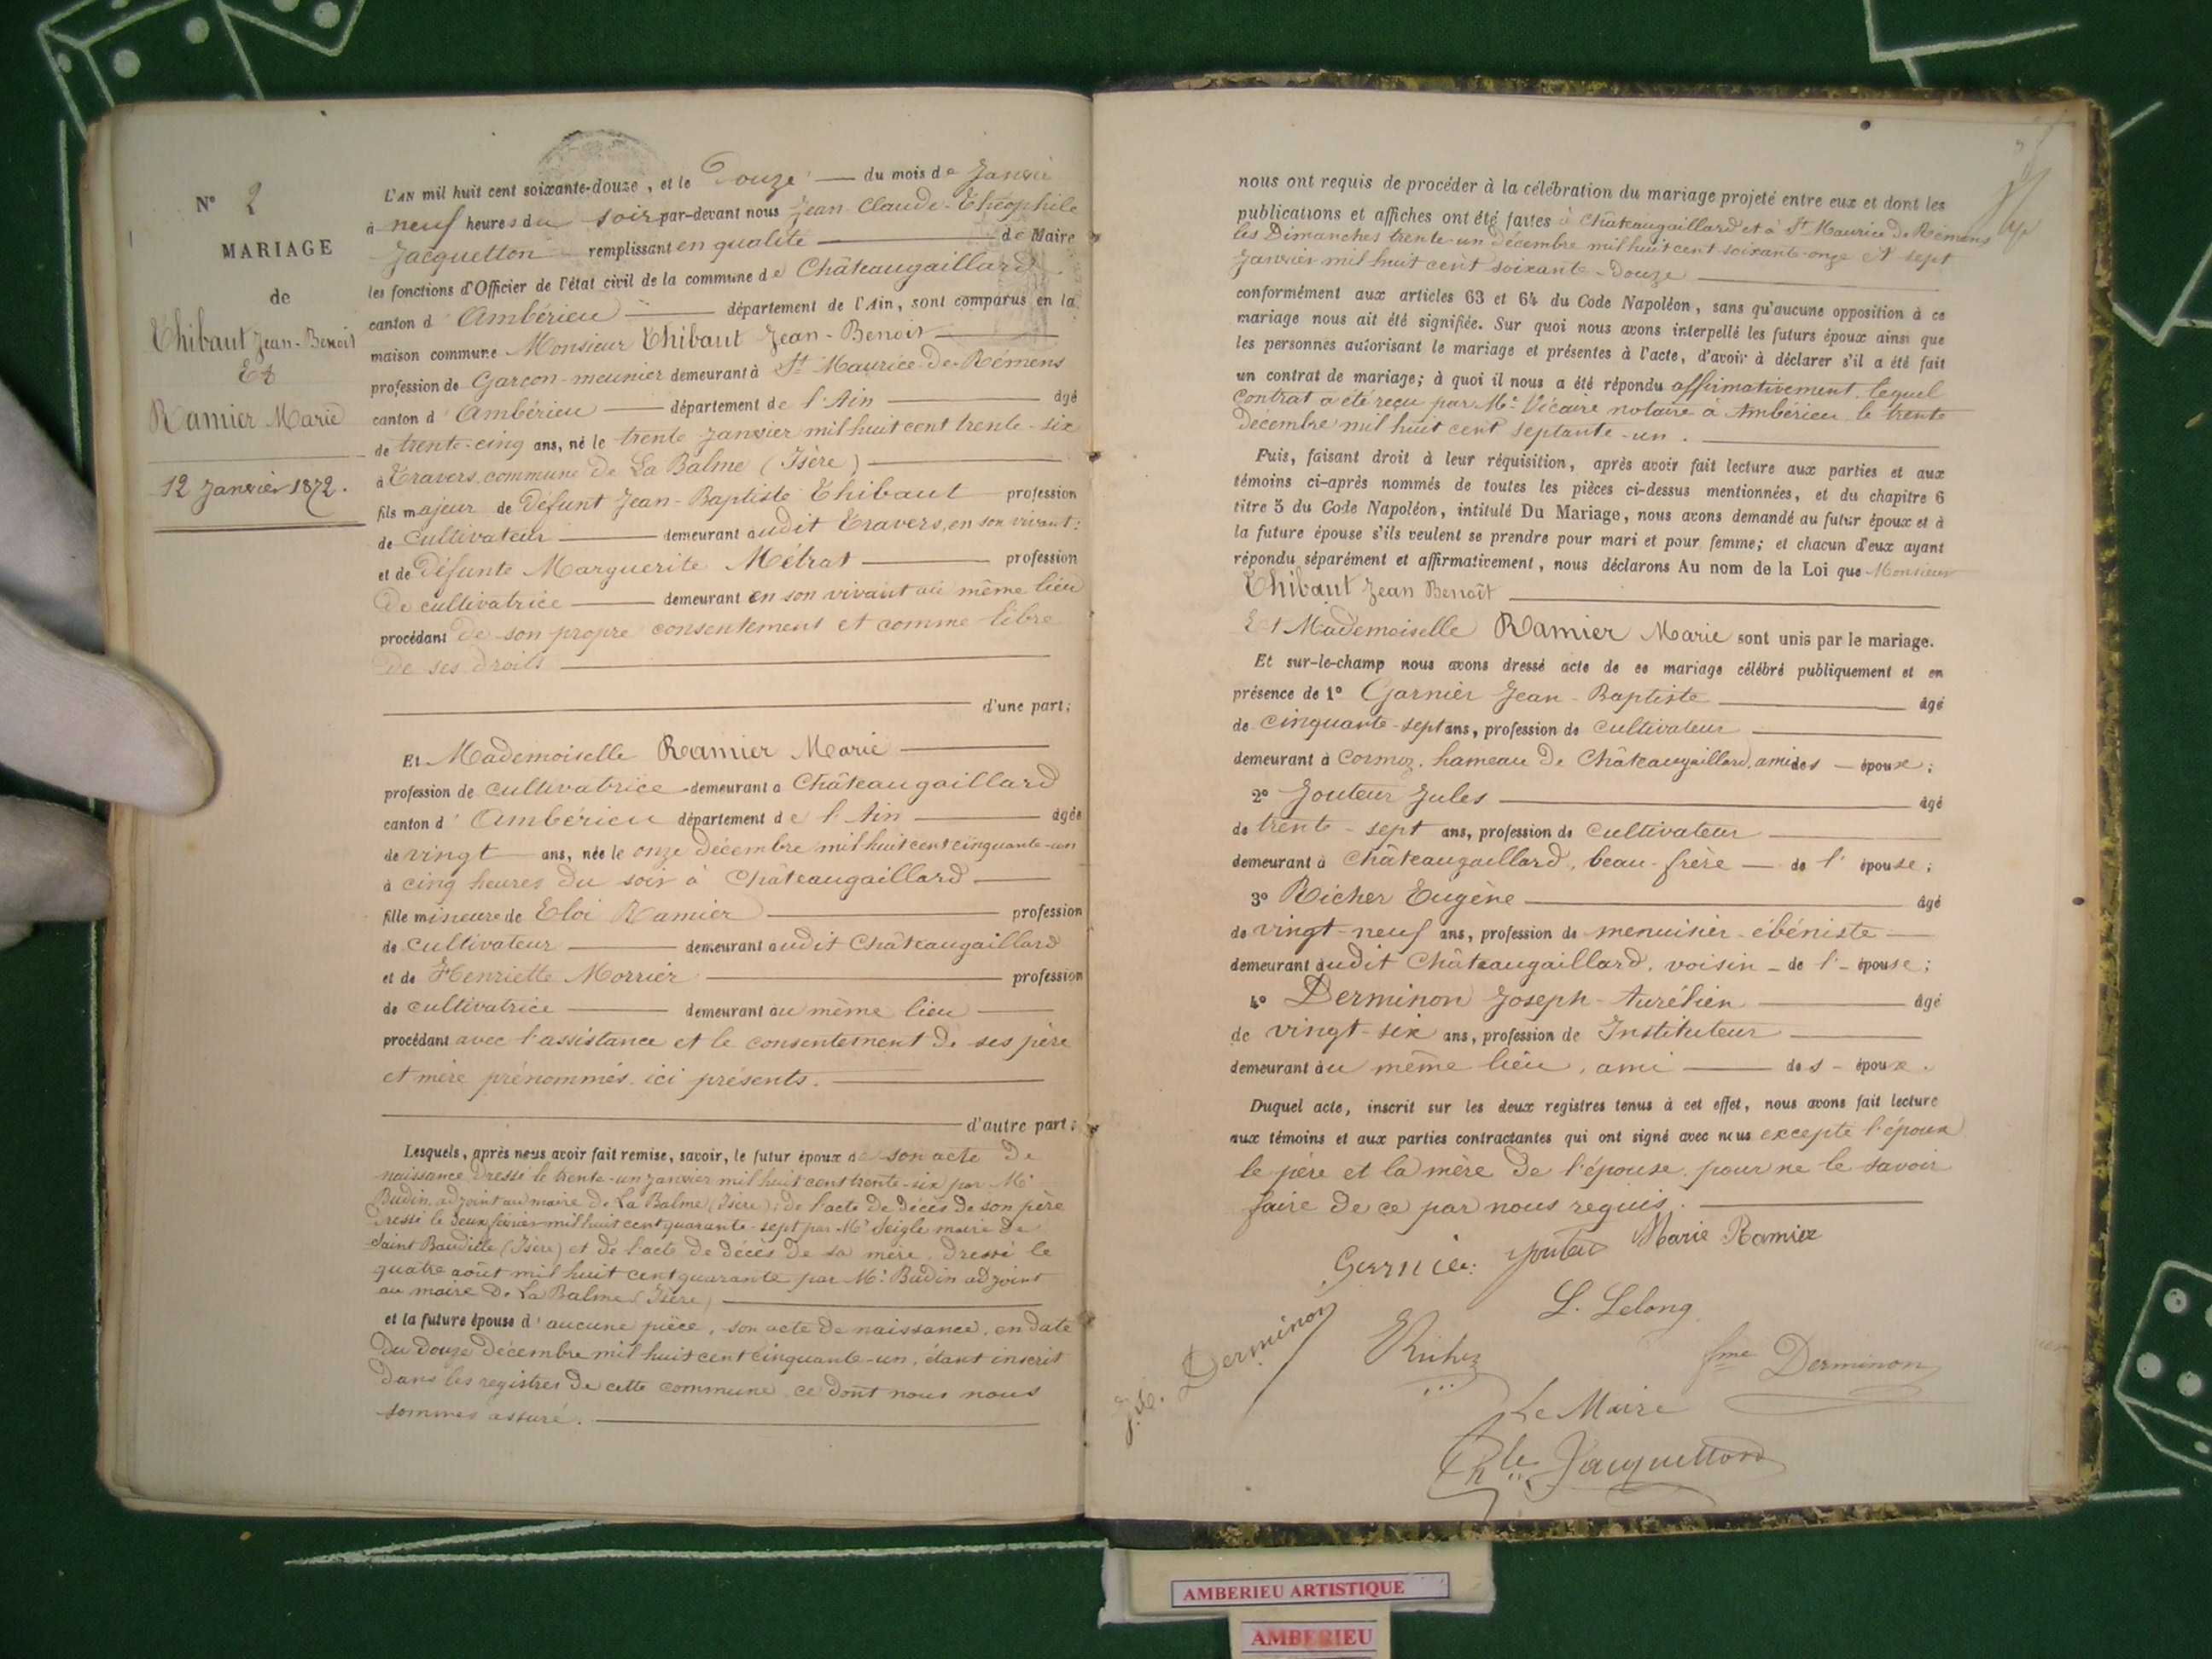 N° 2
MARIAGE
de
Thibaut Jean-Benoit
Et
Ramier Marie
12 Janvier 1872.
L'AN mil huit cent soixante-douze, et le Douze — du mois de Janvier
à neuf heures du soir par-devant nous Jean-Claude-Théophile
Jacquetton remplissant en qualité — de Maire
les fonctions d'Officier de l'état civil de la commune de Châteaugaillard
canton d'Ambérieu — département de l'Ain, sont comparus en la
maison commune Monsieur Thibaut Jean-Benoit —
profession de Garçon-meunier demeurant à St Maurice-de-Rémens
canton d'Ambérieu — département de l'Ain — âgé
de trente-cinq ans, né le trente Janvier mil huit cent trente-six
à Travers, commune de La Balme (Isère) —
fils majeur de Défunt Jean-Baptiste Thibaut profession
de Cultivateur — demeurant audit Travers, en son vivant;
et de Défunte Marguerite Métrat — profession
De cultivatrice — demeurant en son vivant au même lieu
procédant de son propre consentement et comme libre
de ses droits —
— d'une part;
Et Mademoiselle Ramier Marie —
profession de cultivatrice demeurant à Châteaugaillard
canton d'Ambérieu département de l'Ain — âgée
de vingt — ans, née le onze décembre mil huit cent cinquante-un
à cinq heures du soir à Châteaugaillard —
fille mineure de Eloi Ramier — profession
de cultivateur — demeurant audit Châteaugaillard
et de Henriette Morrier — profession
de cultivatrice — demeurant au même lieu —
procédant avec l'assistance et le consentement de ses père
et mère prénommés ici présents. —
— d'autre part;
Lesquels, après nous avoir fait remise, savoir, le futur époux de son acte de
naissance dressé le trente-un janvier mil huit cent trente-six par Mr
Budin, adjoint au maire de La Balme (Isère); de l'acte de décès de son père
dressé le deux février mil huit cent quarante-sept par Mr Seigle maire de
Saint Baudille (Isère) et de l'acte de décès de sa mère, dressé le
quatre août mil huit cent quarante par Mr Budin adjoint
au maire de La Balme (Isère) —
et la future épouse d'aucune pièce, son acte de naissance, en date
du douze décembre mil huit cent cinquante-un, étant inscrit
dans les registres de cette commune ce dont nous nous
sommes assuré. —
nous ont requis de procéder à la célébration du mariage projeté entre eux et dont les
publications et affiches ont été faites à Châteaugaillard et à St Maurice de Rémens
les Dimanches trente-un décembre mil huit cent soixante-onze et sept
Janvier mil huit cent soixante-douze —
conformément aux articles 63 et 64 du Code Napoléon, sans qu'aucune opposition à ce
mariage nous ait été signifiée. Sur quoi nous avons interpellé les futurs époux ainsi que
les personnes autorisant le mariage et présentes à l'acte, d'avoir à déclarer s'il a été fait
un contrat de mariage; à quoi il nous a été répondu affirmativement, lequel
contrat a été reçu par Me Vicaire notaire à Ambérieu le trente
Décembre mil huit cent septante-un. —
Puis, faisant droit à leur réquisition, après avoir fait lecture aux parties et aux
témoins ci-après nommés de toutes les pièces ci-dessus mentionnées, et du chapitre 6
titre 5 du Code Napoléon, intitulé Du Mariage, nous avons demandé au futur époux et à
la future épouse s'ils veulent se prendre pour mari et pour femme; et chacun d'eux ayant
répondu séparément et affirmativement, nous déclarons Au nom de la Loi que Monsieur
Thibaut Jean Benoît —
Et Mademoiselle Ramier Marie sont unis par le mariage.
Et sur-le-champ nous avons dressé acte de ce mariage célébré publiquement et en
présence de 1° Garnier Jean-Baptiste — âgé
de cinquante-sept ans, profession de cultivateur —
demeurant à Cormoz, hameau de Châteaugaillard, ami des — époux;
2° Jouteur Jules — âgé
de trente-sept ans, profession de cultivateur —
demeurant à Châteaugaillard, beau-frère — de l'épouse;
3° Richer Eugène — âgé
de vingt-neuf ans, profession de menuisier-ébéniste —
demeurant audit Châteaugaillard, voisin — de l'épouse;
4° Derminon Joseph-Aurélien — âgé
de vingt-six ans, profession de Instituteur —
demeurant au même lieu, ami — des époux.
Duquel acte, inscrit sur les deux registres tenus à cet effet, nous avons fait lecture
aux témoins et aux parties contractantes qui ont signé avec nous excepté l'époux
le père et la mère de l'épouse, pour ne le savoir
faire de ce par nous requis. —
Garnier Marie Ramier
L. Lelong
J. A. Derminon
fme Derminon
Le Maire
Jacquetton
AMBERIEU ARTISTIQUE
AMBERIEU